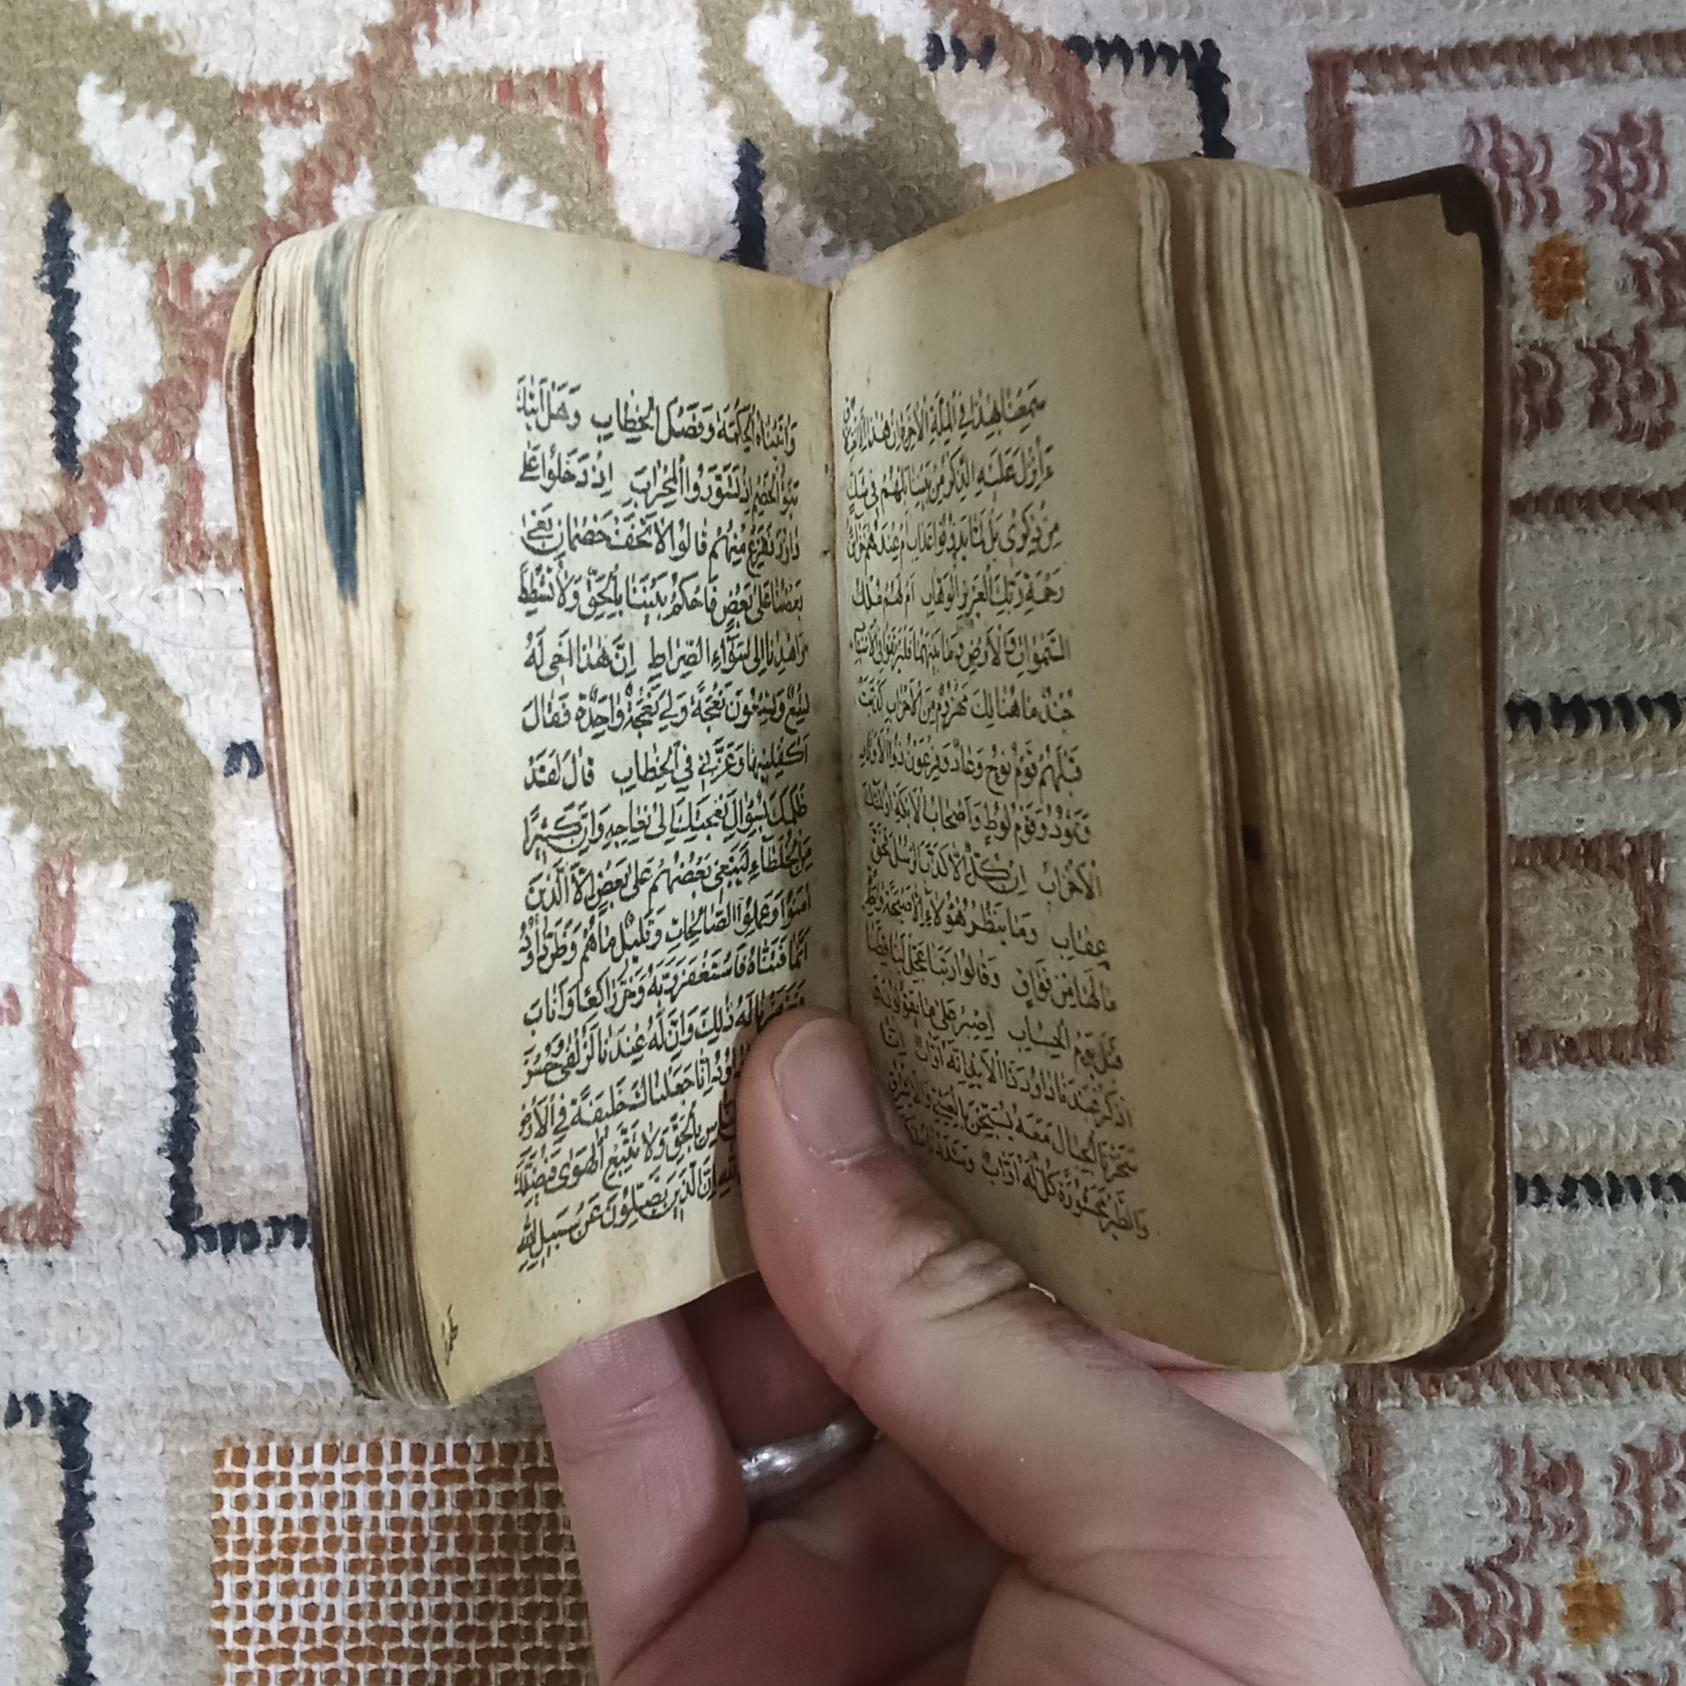 سَمِعْنَا بِهٰذَا فِي الْمِلَّةِ الْاٰخِرَةِ اِنْ هٰذَا اِلَّا اخْتِلَاقٌ
ءَاُنْزِلَ عَلَيْهِ الذِّكْرُ مِنْ بَيْنِنَا بَلْ هُمْ فِي شَكٍّ
مِنْ ذِكْرِي بَلْ لَمَّا يَذُوقُوا عَذَابِ اَمْ عِنْدَهُمْ خَزَائِنُ
رَحْمَةِ رَبِّكَ الْعَزِيزِ الْوَهَّابِ اَمْ لَهُمْ مُلْكُ
السَّمٰوَاتِ وَالْاَرْضِ وَمَا بَيْنَهُمَا فَلْيَرْتَقُوا فِي الْاَسْبَابِ
جُنْدٌ مَا هُنَالِكَ مَهْزُومٌ مِنَ الْاَحْزَابِ كَذَّبَتْ
قَبْلَهُمْ قَوْمُ نُوحٍ وَعَادٌ وَفِرْعَوْنُ ذُو الْاَوْتَادِ
وَثَمُودُ وَقَوْمُ لُوطٍ وَاَصْحَابُ لْاَيْكَةِ اُولٰئِكَ
الْاَحْزَابُ اِنْ كُلٌّ اِلَّا كَذَّبَ الرُّسُلَ فَحَقَّ
عِقَابِ وَمَا يَنْظُرُ هٰؤُلَاءِ اِلَّا صَيْحَةً وَاحِدَةً
مَا لَهَا مِنْ فَوَاقٍ وَقَالُوا رَبَّنَا عَجِّلْ لَنَا قِطَّنَا
قَبْلَ يَوْمِ الْحِسَابِ اِصْبِرْ عَلٰى مَا يَقُولُونَ
وَاذْكُرْ عَبْدَنَا دَاوُدَ ذَا الْاَيْدِ اِنَّهُ اَوَّابٌ اِنَّا
سَخَّرْنَا الْجِبَالَ مَعَهُ يُسَبِّحْنَ بِالْعَشِيِّ وَالْاِشْرَاقِ
وَالطَّيْرَ مَحْشُورَةً كُلٌّ لَهُ اَوَّابٌ وَشَدَدْنَا مُلْكَهُ
وَاٰتَيْنَاهُ الْحِكْمَةَ وَفَصْلَ الْخِطَابِ وَهَلْ اَتٰيكَ
نَبَؤُا الْخَصْمِ اِذْ تَسَوَّرُوا الْمِحْرَابَ اِذْ دَخَلُوا عَلٰى
دَاوُدَ فَفَزِعَ مِنْهُمْ قَالُوا لَا تَخَفْ خَصْمَانِ بَغٰى
بَعْضُنَا عَلٰى بَعْضٍ فَاحْكُمْ بَيْنَنَا بِالْحَقِّ وَلَا تُشْطِطْ
وَاهْدِنَا اِلٰى سَوَآءِ الصِّرَاطِ اِنَّ هٰذَا اَخِي لَهُ
تِسْعٌ وَتِسْعُونَ نَعْجَةً وَلِيَ نَعْجَةٌ وَاحِدَةٌ فَقَالَ
اَكْفِلْنِيهَا وَعَزَّنِي فِي الْخِطَابِ قَالَ لَقَدْ
ظَلَمَكَ بِسُؤَالِ نَعْجَتِكَ اِلٰى نِعَاجِهِ وَاِنَّ كَثِيرًا
مِنَ الْخُلَطَآءِ لَيَبْغِي بَعْضُهُمْ عَلٰى بَعْضٍ اِلَّا الَّذِينَ
اٰمَنُوا وَعَمِلُوا الصَّالِحَاتِ وَقَلِيلٌ مَا هُمْ وَظَنَّ دَاوُدُ
اَنَّمَا فَتَنَّاهُ فَاسْتَغْفَرَ رَبَّهُ وَخَرَّ رَاكِعًا وَاَنَابَ
فَغَفَرْنَا لَهُ ذٰلِكَ وَاِنَّ لَهُ عِنْدَنَا لَزُلْفٰى وَحُسْنَ
دَاوُدُ اِنَّا جَعَلْنَاكَ خَلِيفَةً فِي الْاَرْضِ
بِالْحَقِّ وَلَا تَتَّبِعِ الْهَوٰى فَيُضِلَّكَ
اِنَّ الَّذِينَ يَضِلُّونَ عَنْ سَبِيلِ اللّٰهِ